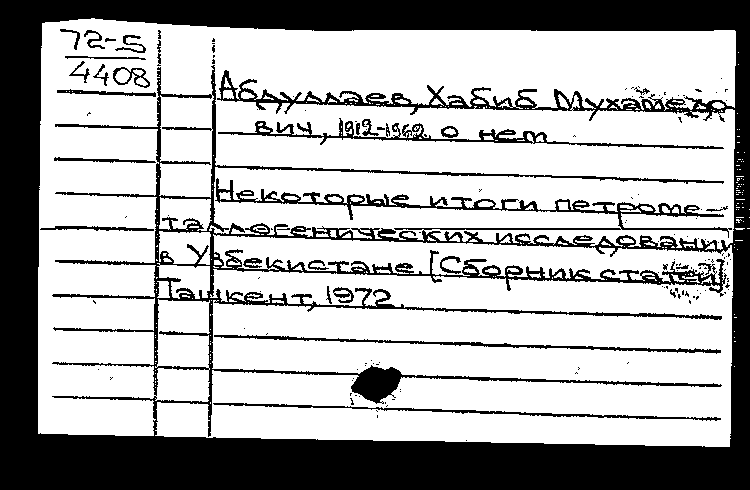 72-5
4408
Абдуллаев, Хабиб Мухамедо
вич, 1912-1962. о нем
Некоторые итоги петроме-
таллогенических исследований
в Узбекистане. [Сборник статей]
Ташкент, 1972.